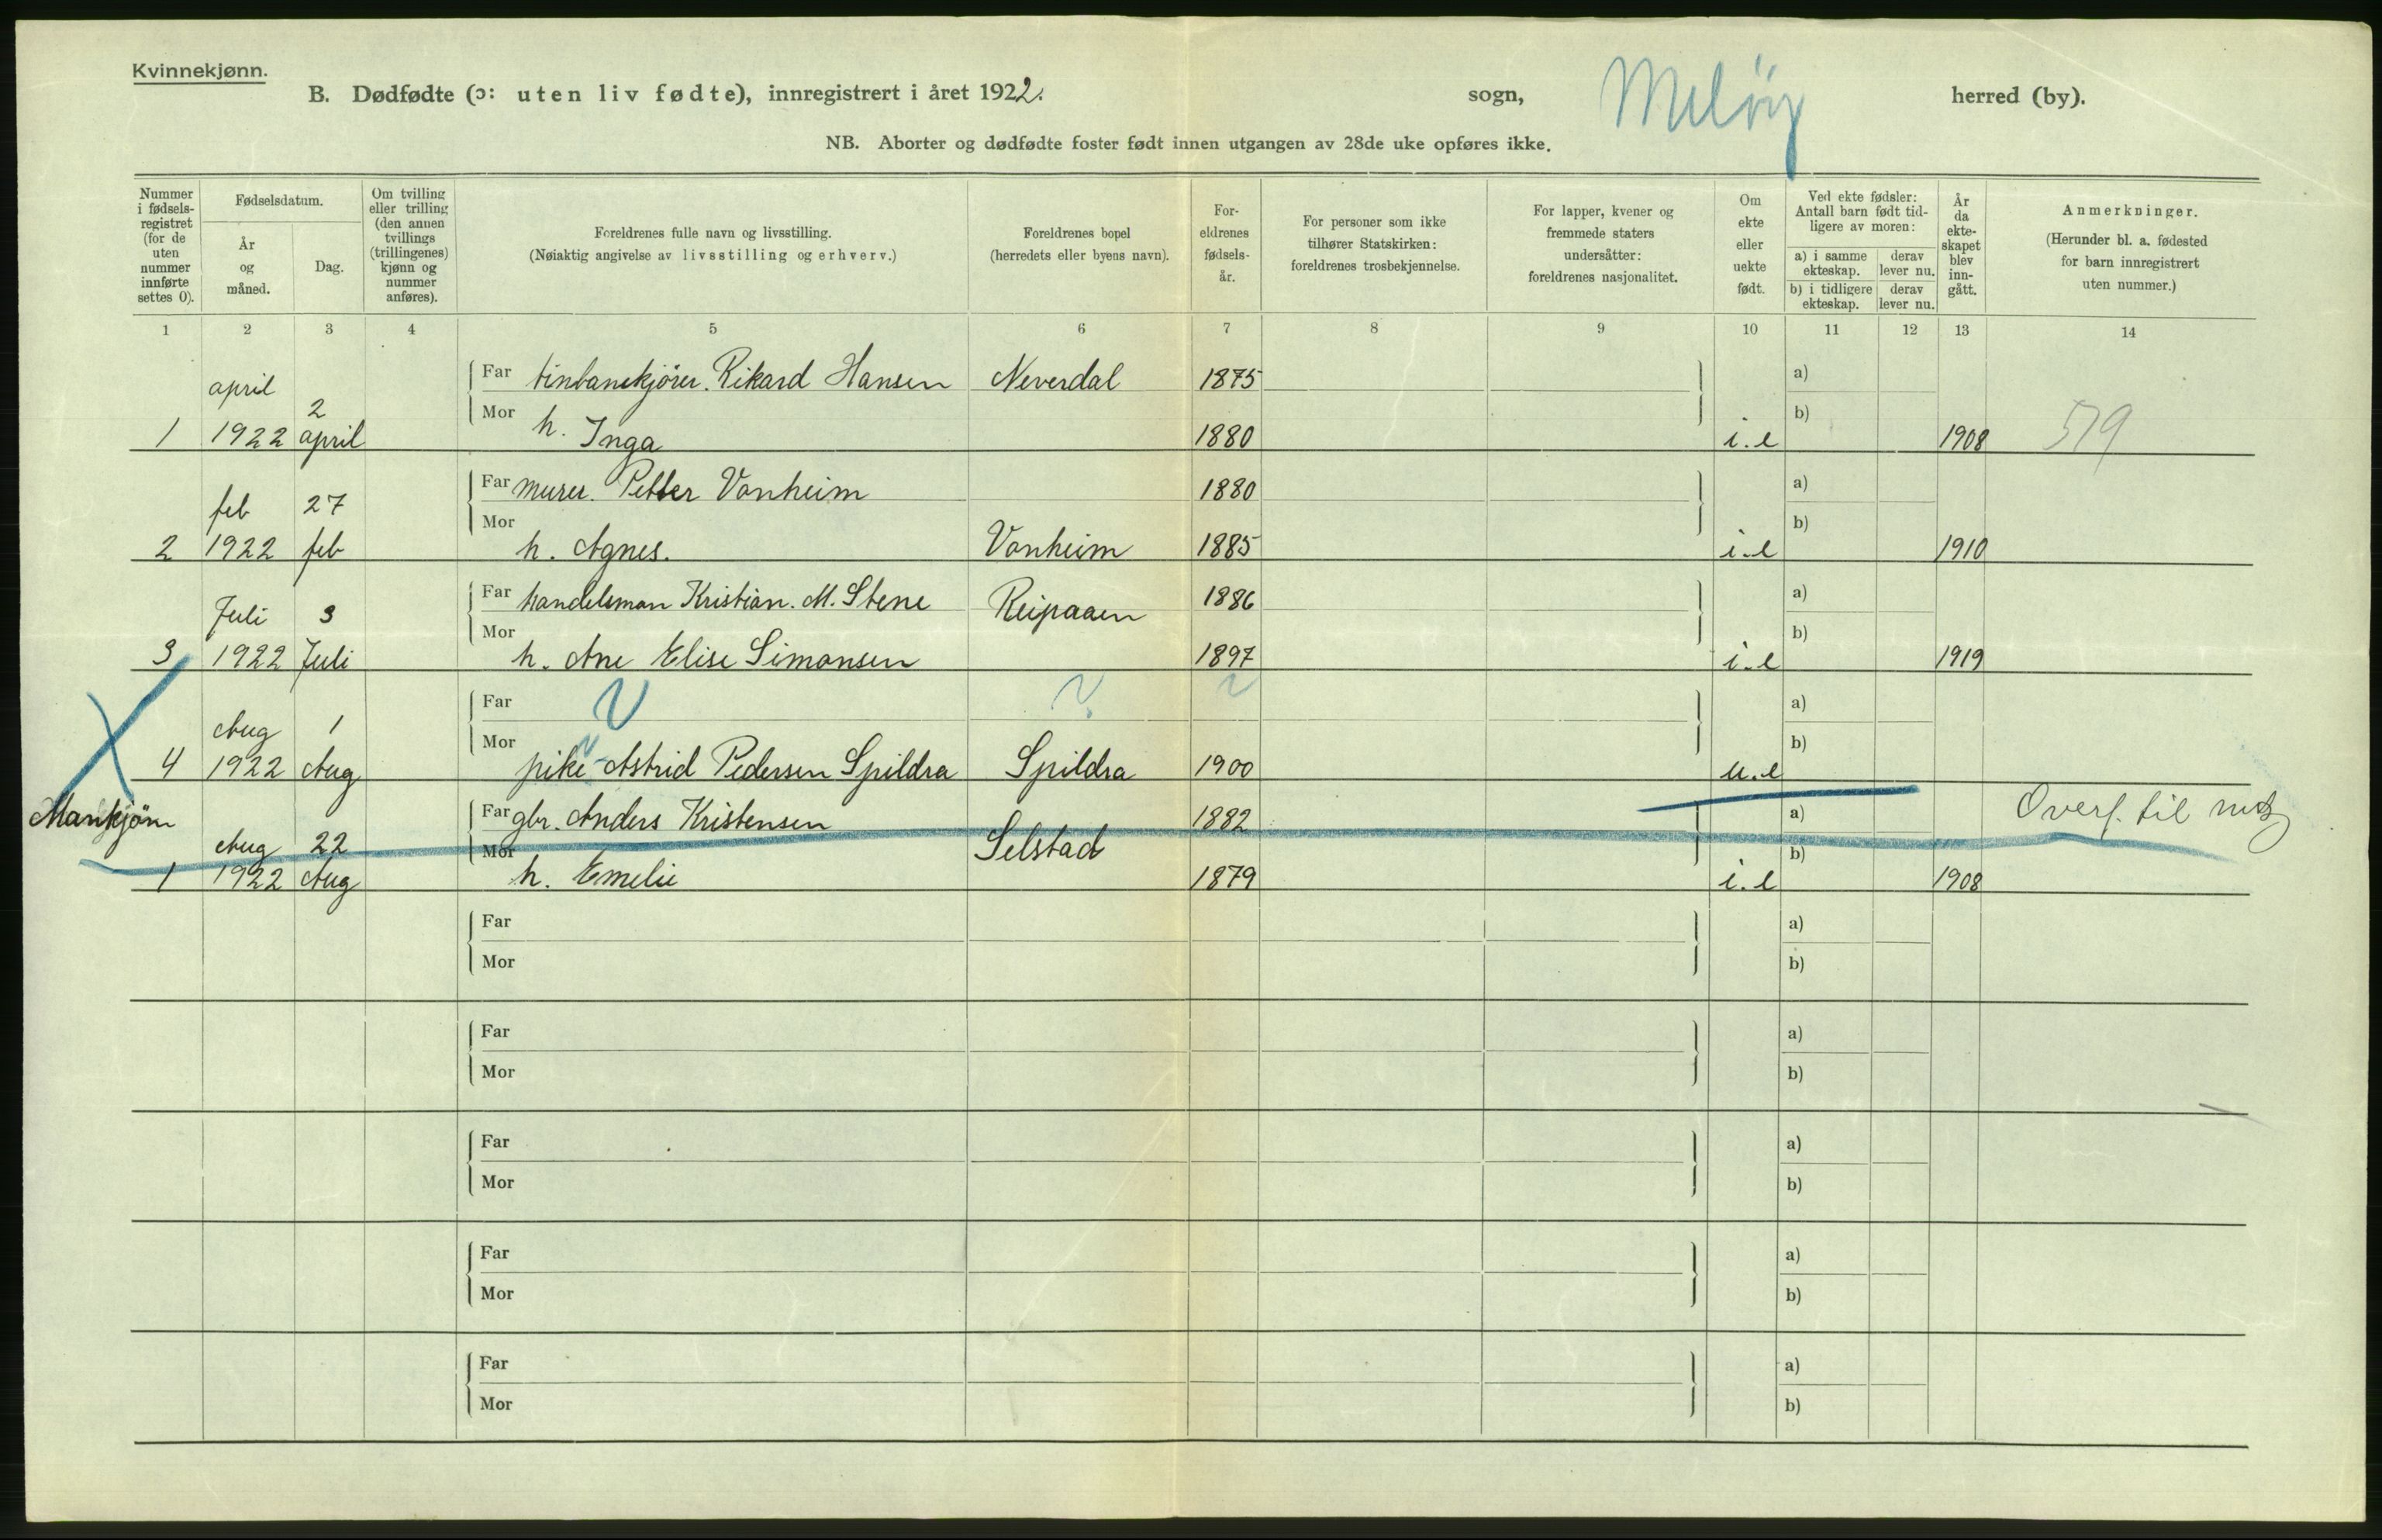 Kvinnekjønn.
B. Dødfødte (ɔ: uten liv fødte), innregistrert i året 1922. sogn, Meløy herred (by).
NB. Aborter og dødfødte foster født innen utgangen av 28de uke opføres ikke.
Nummer i fødsels-registret (for de uten nummer innførte settes 0).
Fødselsdatum.
År og måned.
Dag.
Om tvilling eller trilling (den annen tvillings (trillingenes) kjønn og nummer anføres).
Foreldrenes fulle navn og livsstilling.
(Nøiaktig angivelse av livsstilling og erhverv.)
Foreldrenes bopel
(herredets eller byens navn).
For-eldrenes fødsels-år.
For personer som ikke tilhører Statskirken: foreldrenes trosbekjennelse.
For lapper, kvener og fremmede staters undersåtter: foreldrenes nasjonalitet.
Om ekte eller uekte født.
Ved ekte fødsler: Antall barn født tid-ligere av moren:
a) i samme ekteskap. derav lever nu.
b) i tidligere ekteskap. derav lever nu.
År da ekte-skapet blev inn-gått.
Anmerkninger.
(Herunder bl. a. fødested for barn innregistrert uten nummer.)
1 2 3 4 5 6 7 8 9 10 11 12 13 14
april Far Rikard Hansen Neverdal 1875 a)
2 Mor b)
1 1922 april h. Inga 1880 i.e 1908 579
Far murer. Petter Vonheim 1880 a)
feb 27 Mor b)
2 1922 feb h. Agnes. Vonheim 1885 i.e 1910
Far handelsman Kristian. M. Stene Reipaaen 1886 a)
Juli 3 Mor b)
3 1922 Juli h. Ane Elise Simonsen 1897 i.e 1919
Far ? a)
Aug 1 Mor b)
4 1922 Aug pike Astrid Pedersen Spildra Spildra 1900 u.e
Mankjøn Far gbr. Anders Kristensen 1882 a) Overf. til
Aug 22 Mor Selstad b)
1 1922 Aug h. Emelie 1879 i.e 1908
Far a)
Mor b)
Far a)
Mor b)
Far a)
Mor b)
Far a)
Mor b)
Far a)
Mor b)